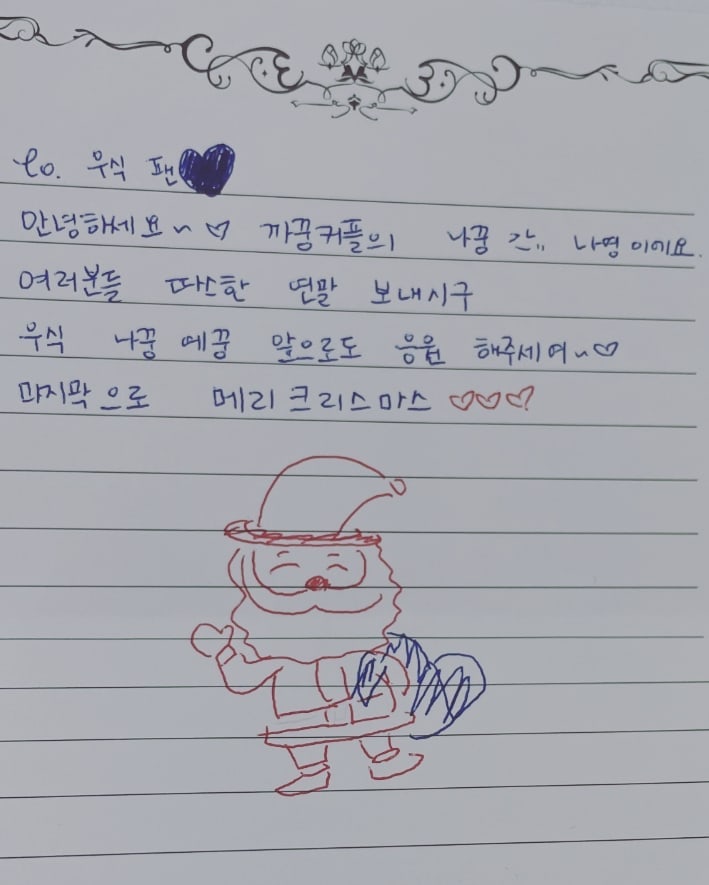 to. 우식 팬
안녕하세요~♡ 까꿍커플의 나꿍 나영이에요.
여러분들 따스한 연말 보내시구
우식 나꿍 예꿍 앞으로도 응원 해주세여~♡
마지막으로 메리크리스마스 ♡♡♡